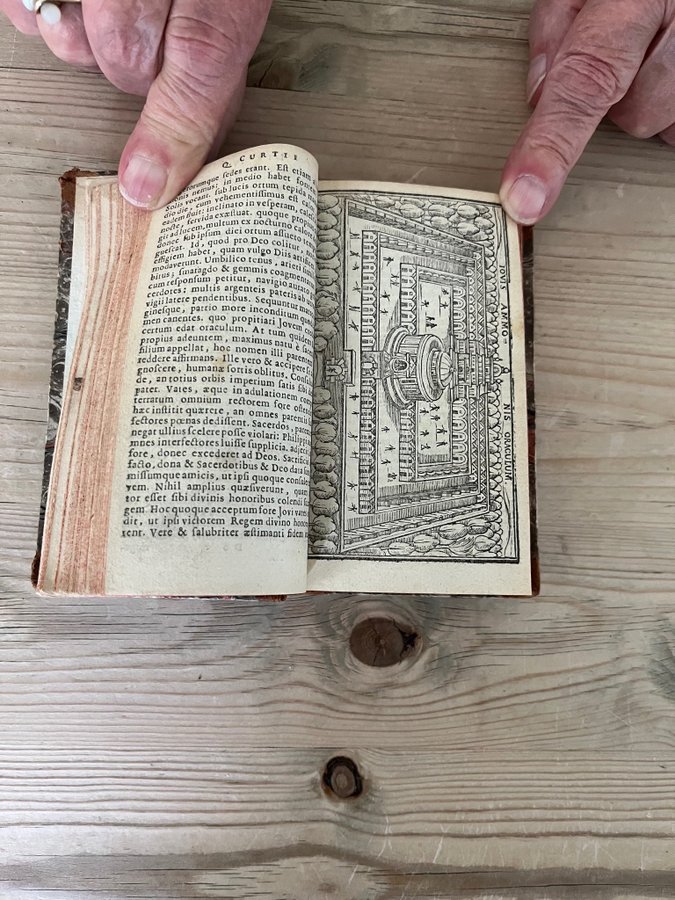 Q CURTII
sedes erant. Est etiam
nemus: in medio habet
Solis vocant. sub lucis ortum tepida
dio die, cum vehementissimus est
eadem fluit: inclinato in vesperam,
nocte, fervida exæstuat. quoque
gis ad lucem, multum ex nocturno
donec sub ipsum diei ortum assueto
guescat. Id, quod pro Deo colitur,
effigiem habet, quam vulgo Diis
modaverunt. Umbilico tenus, arieti
bitus; smaragdo & gemmis
cum responsum petitur, navigio
cerdotes; multis argenteis pateris ab
vigii latere pendentibus. Sequuntur
ginesque, patrio more inconditum
men canentes. quo propitiari Jovem
certum edat oraculum. At tum quidem
propius adeuntem, maximus natu è
filium appellat, hoc nomen illi
reddere affirmans. Ille vero & accipere
gnoscere, humanæ sortis oblitus.
de, an totius orbis imperium satis sibi
pater. Vates, æque in adulationem
terrarum omnium rectorem fore
hæc institit quærere, an omnes
fectores pœnas dedissent. Sacerdos,
negat ullius scelere posse violari:
mnes interfectores luisse supplicia.
fore, donec excederet ad Deos.
facto, dona & Sacerdotibus & Deo
missumque amicis, ut ipsi quoque
vem. Nihil amplius quæsiverunt,
tor esset sibi divinis honoribus colendi
gem. Hoc quoque acceptum fore Jovi
dit, ut ipsi victorem Regem divino
rent. Vere & salubriter æstimanti
IOVIS AMMO=
NIS ORACULUM